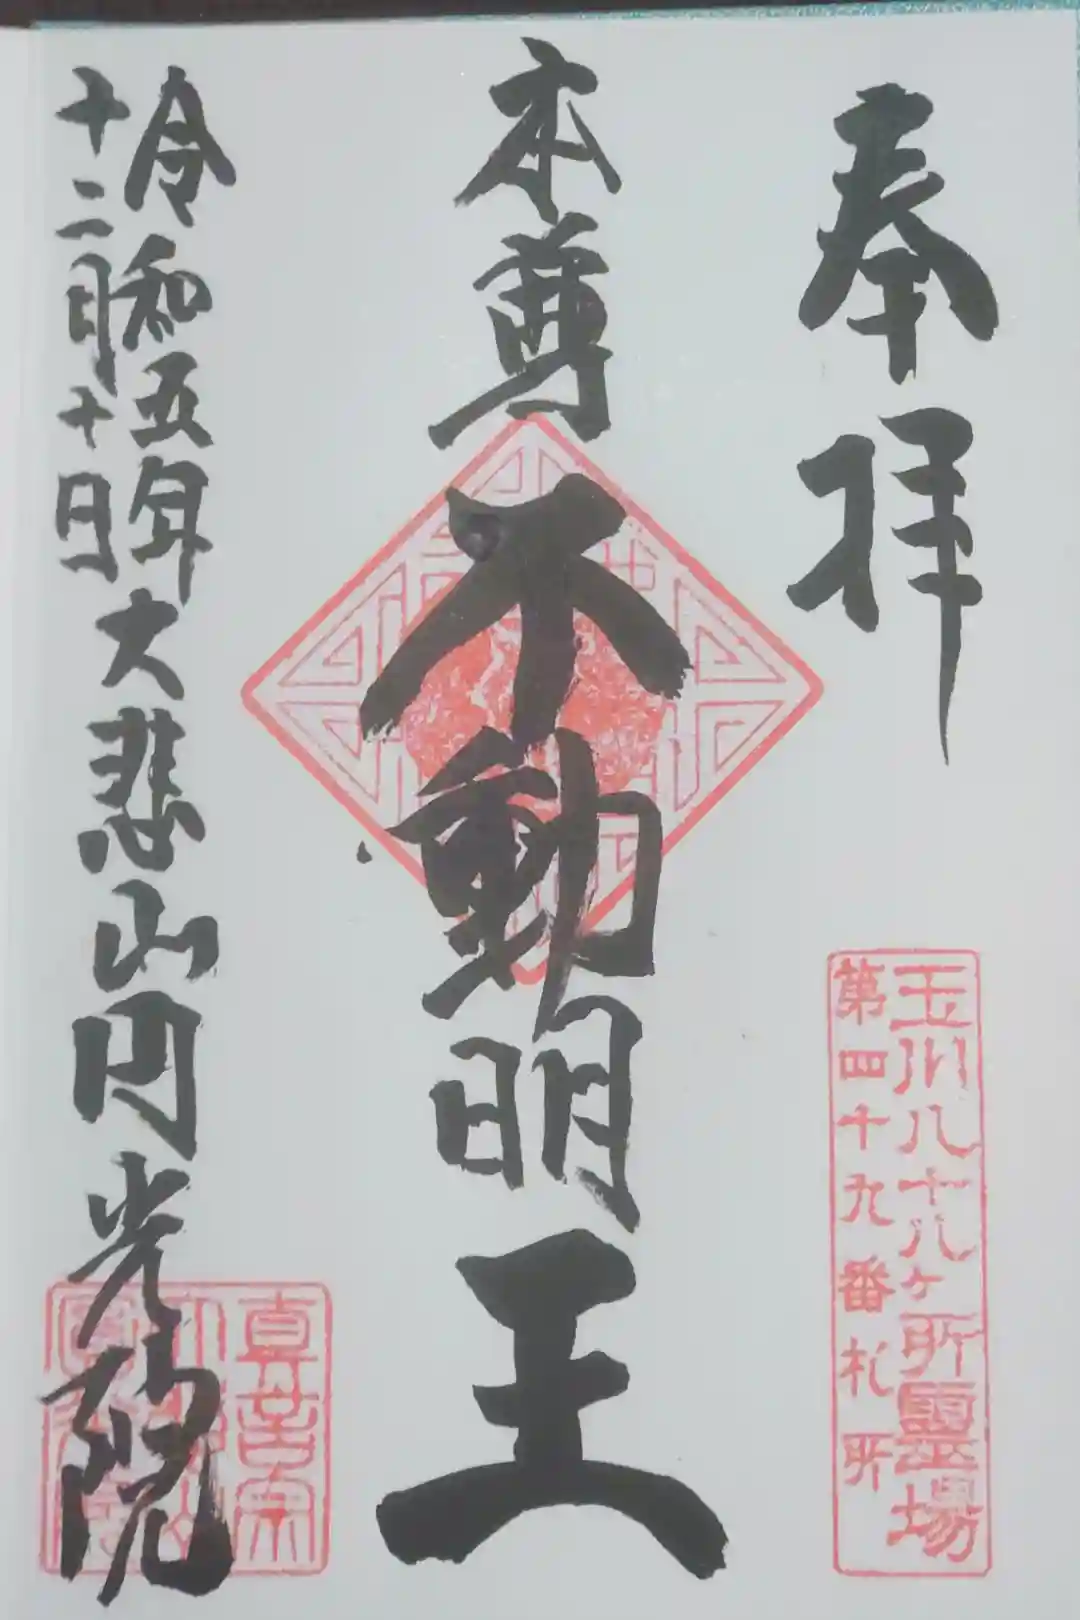 奉拝
玉川八十八ヶ所霊場
第四十九番札所
本尊不動明王
令和五年大悲山円光院
十二月十日
真言宗